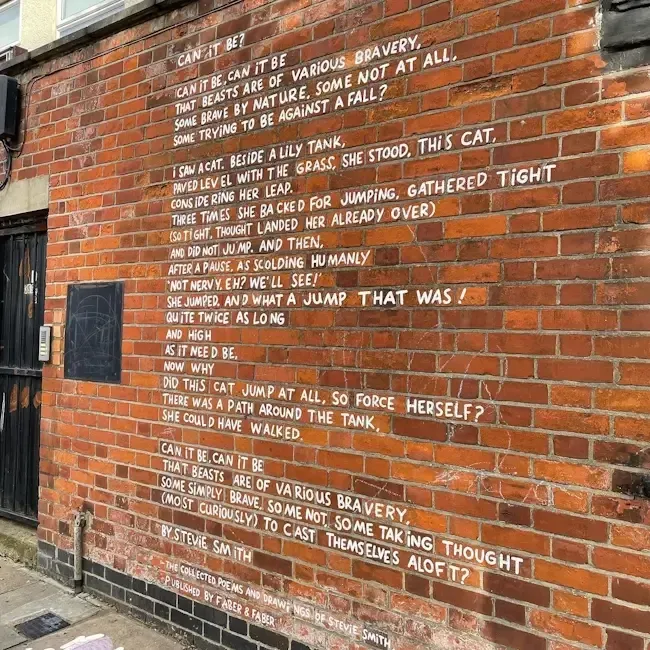 CAN IT BE?
CAN IT BE, CAN IT BE
THAT BEASTS ARE OF VARIOUS BRAVERY,
SOME BRAVE BY NATURE, SOME NOT AT ALL,
SOME TRYING TO BE AGAINST A FALL?
I SAW A CAT, BESIDE A LILY TANK,
PAVED LEVEL WITH THE GRASS, SHE STOOD, THIS CAT,
CONSIDERING HER LEAP.
THREE TIMES SHE BACKED FOR JUMPING, GATHERED TIGHT
(SO TIGHT, THOUGHT LANDED HER ALREADY OVER)
AND DID NOT JUMP. AND THEN,
AFTER A PAUSE, AS SCOLDING HUMANLY
'NOT NERVY, EH? WE'LL SEE!'
SHE JUMPED. AND WHAT A JUMP THAT WAS!
QUITE TWICE AS LONG
AND HIGH
AS IT NEED BE.
NOW WHY
DID THIS CAT JUMP AT ALL, SO FORCE HERSELF?
THERE WAS A PATH AROUND THE TANK,
SHE COULD HAVE WALKED.
CAN IT BE, CAN IT BE
THAT BEASTS ARE OF VARIOUS BRAVERY,
SOME SIMPLY BRAVE, SOME NOT, SOME TAKING THOUGHT
(MOST CURIOUSLY) TO CAST THEMSELVES ALOFT?
BY STEVIE SMITH
THE COLLECTED POEMS AND DRAWINGS OF STEVIE SMITH
PUBLISHED BY FABER & FABER